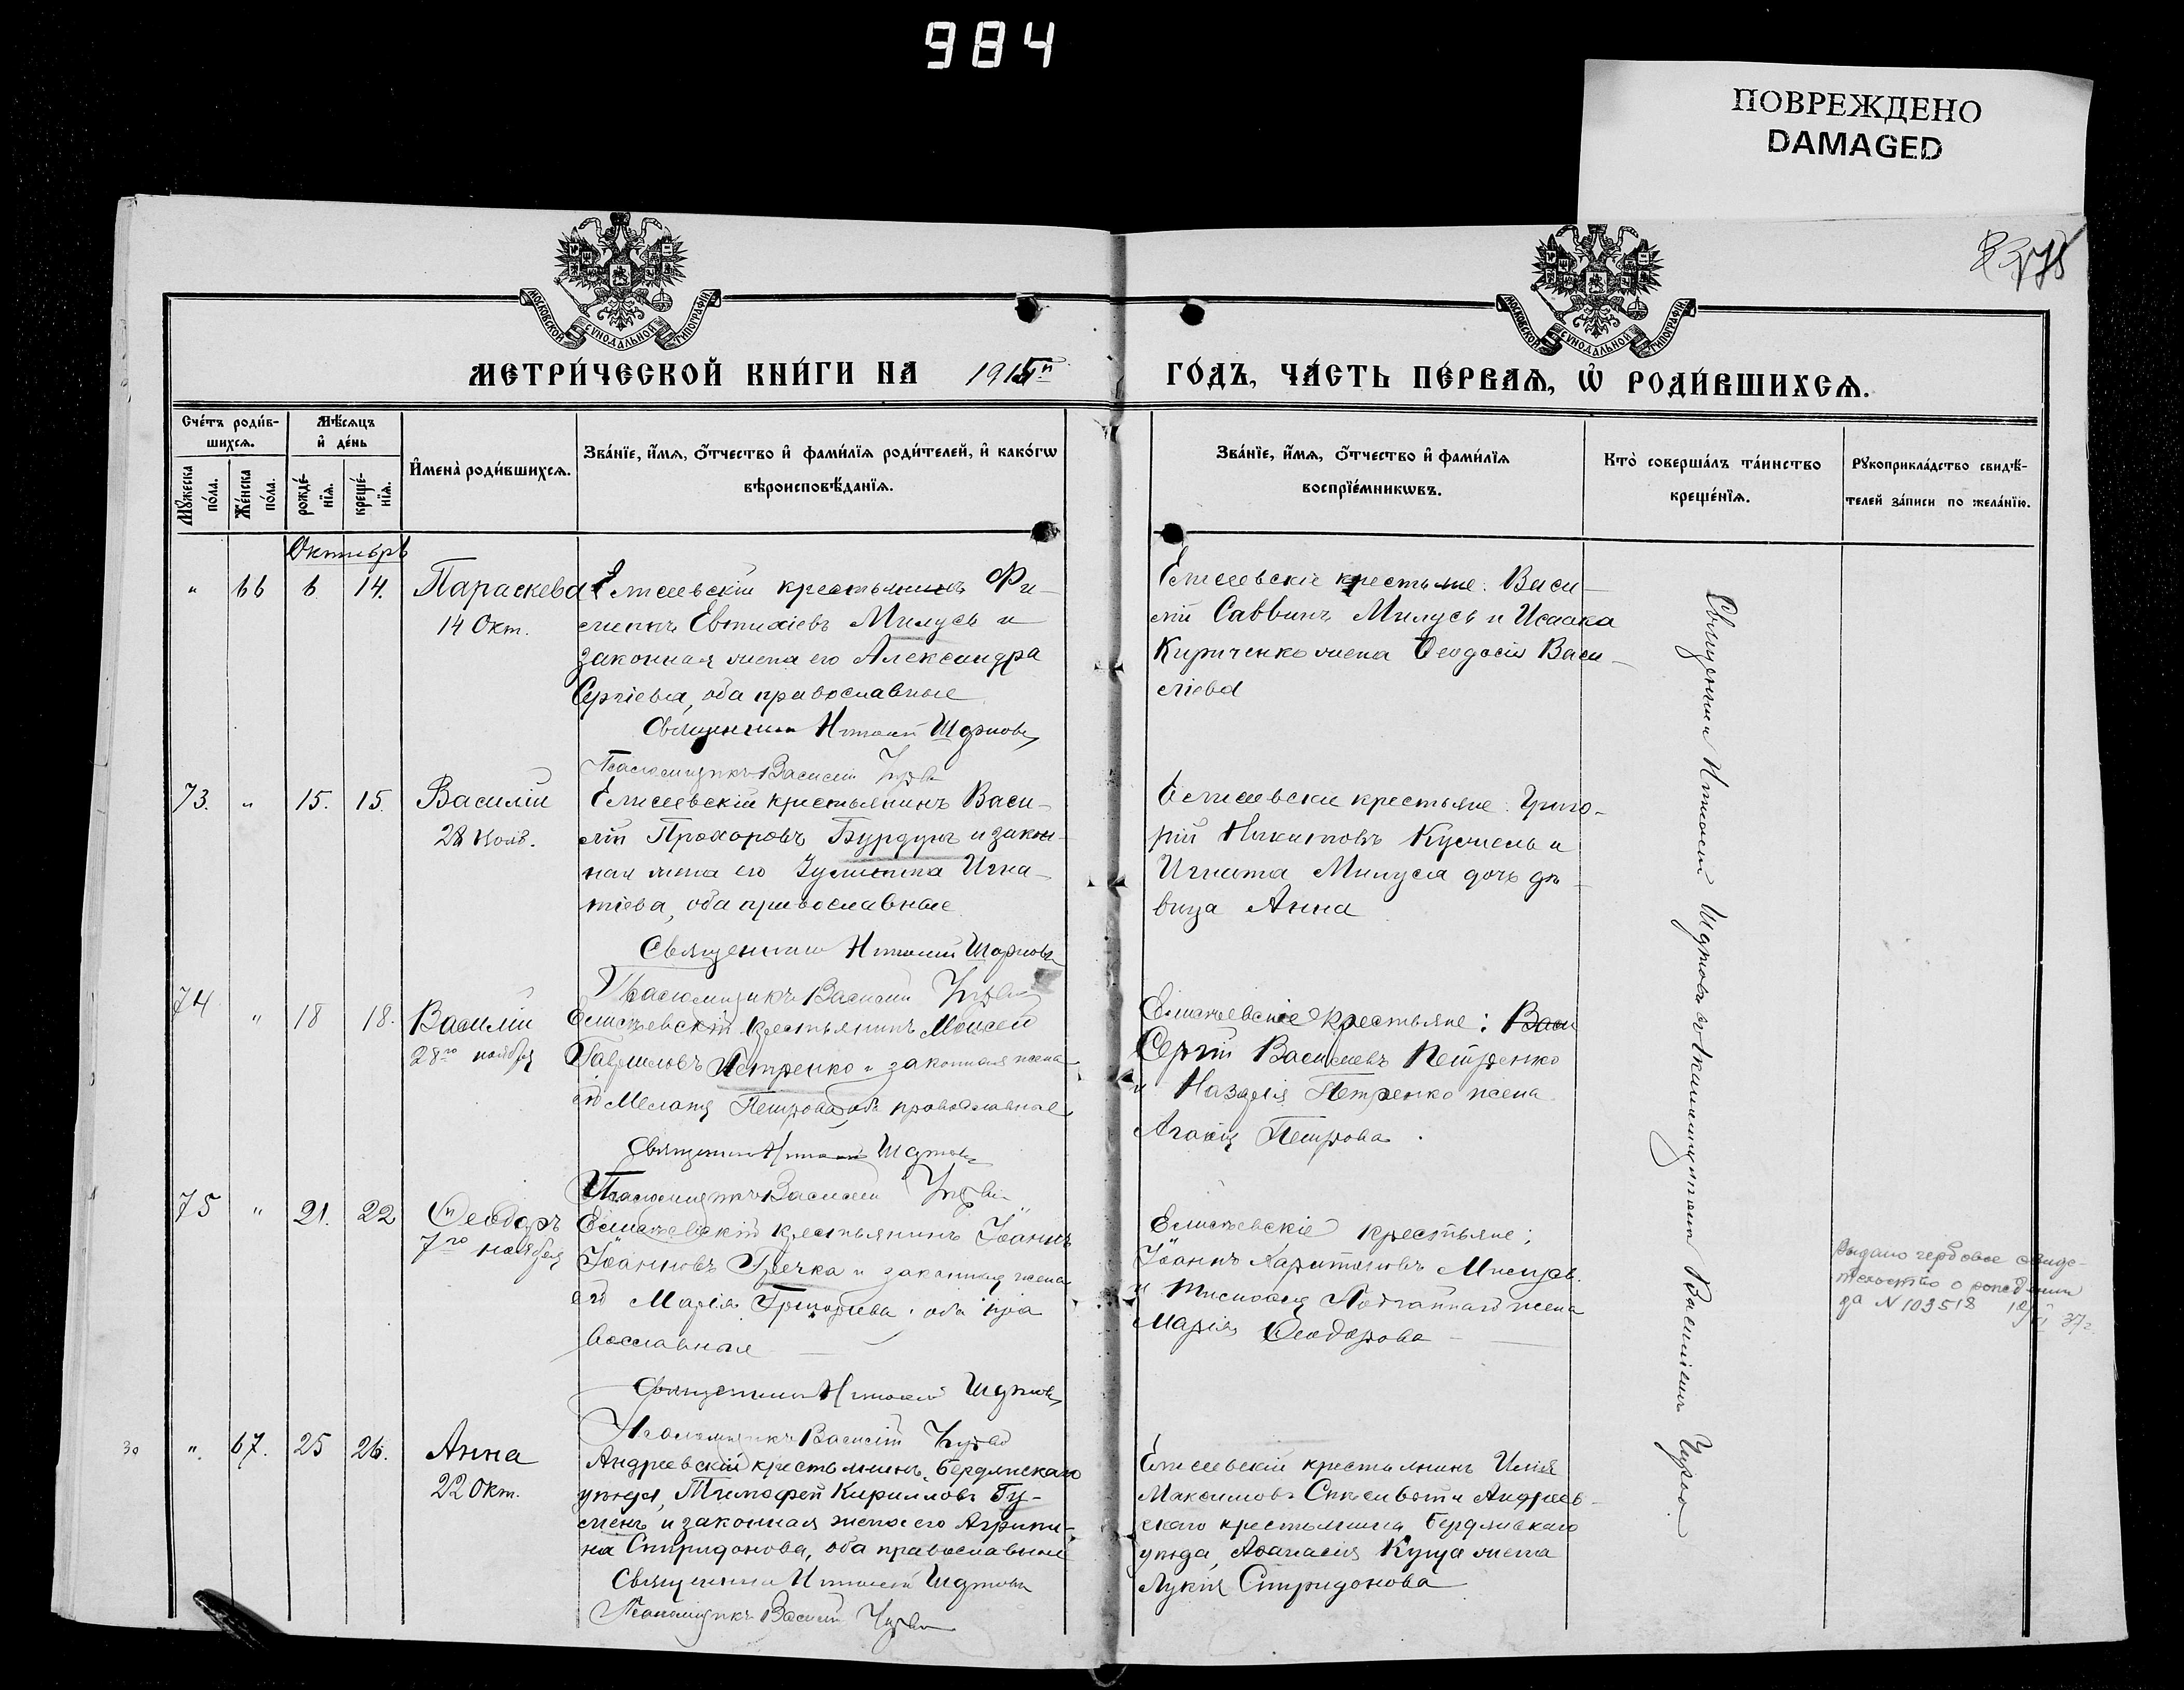 984
ПОВРЕЖДЕНО
DAMAGED
МОСКОВСКОЙ СѴНОДАЛЬНОЙ ТИПОГРАФІИ
МОСКОВСКОЙ СѴНОДАЛЬНОЙ ТИПОГРАФІИ
МЕТРИ́ЧЕСКОЙ КНИ́ГИ НА 191
ГО́ДЪ, ЧА́СТЬ ПЕ́РВАѦ, Ѡ҆ РОДИ́ВШИХСѦ.
Сче́тъ роди́в-
шихсѧ.
Мꙋжеска
по́ла.
Же́нска
по́ла.
Мѣ́сѧцъ
и҆ де́нь
рожде́-
нїѧ.
креще́-
нїѧ.
И҆мена̀ роди́вшихсѧ.
Зва́нїе, и҆́мѧ, ѻ҆́тчество и҆ фами́лїѧ роди́телей, и҆ како́гѡ
вѣроисповѣ́данїѧ.
Зва́нїе, и҆́мѧ, ѻ҆́тчество и҆ фами́лїѧ
воспрїе́мникѡвъ.
Кто̀ соверша́лъ та́инство
креще́нїѧ.
Рꙋкоприкла́дство свидѣ́-
телей за́писи по жела́нїю.
Октябрь
" 66 6 14. Параскева
14 Окт.
Елисеевскій крестьянинъ Фи-
липпъ Евтихіевъ Милусь и
законная жена его Александра
Сергіева, оба православные
Священникъ
Псаломщикъ Василій
Елисеевскіе крестьяне: Васи-
лій Саввинъ Милусь и Исаака
Кириченко жена Ѳеодосія Васи-
ліева
73. " 15. 15. Василій
28 Нояб.
Елисеевскій крестьянинъ Васи-
лій Прохоровъ Бурдунъ и закон-
ная жена его Іулитта Игна-
тіева, оба православные
Священникъ
Псаломщикъ Василій
Елисеевскіе крестьяне: Григо-
рій Никитовъ Кужель и
Игната Милуся дочь дѣ-
вица Анна
74 " 18 18. Василій
28го ноября
Елисѣевскій крестьянинъ Моисей
Гавриловъ Петренко и законная жена
его Петрова, оба православные
Священникъ
Псаломщикъ Василій
Елисѣевскіе крестьяне: Васи
Сергій Васильевъ Петренко
и Назарія Петренко жена
Петрова.
75 " 21. 22 Ѳеодоръ
7го ноября
Елисѣевскій крестьянинъ Іоаннъ
Іоанновъ Гречка и законная жена
его Марія Григорьева, оба пра
вославные
Священникъ
Псаломщикъ Василій
Елисѣевскіе крестьяне:
Іоаннъ Харитоновъ
и жена
Марія Ѳеодорова
Выдано гербовое свиде-
тельство о рождении
да N 103518 37 г.
30 " 67. 25 26. Анна
22 Окт.
Андреевскій крестьянинъ, Бердянскаго
уѣзда, Тимофей Кирилловъ Гу-
менъ и законная жена его Агрипи-
на Спиридонова, оба православные
Священникъ
Псаломщикъ Василій
Елисеевскій крестьянинъ Илія
Максимовъ и Андреев-
скаго крестьянина Бердянскаго
уѣзда, Аѳанасія Куща жена
Лукія Спиридонова
Священникъ съ псаломщикомъ Василіемъ